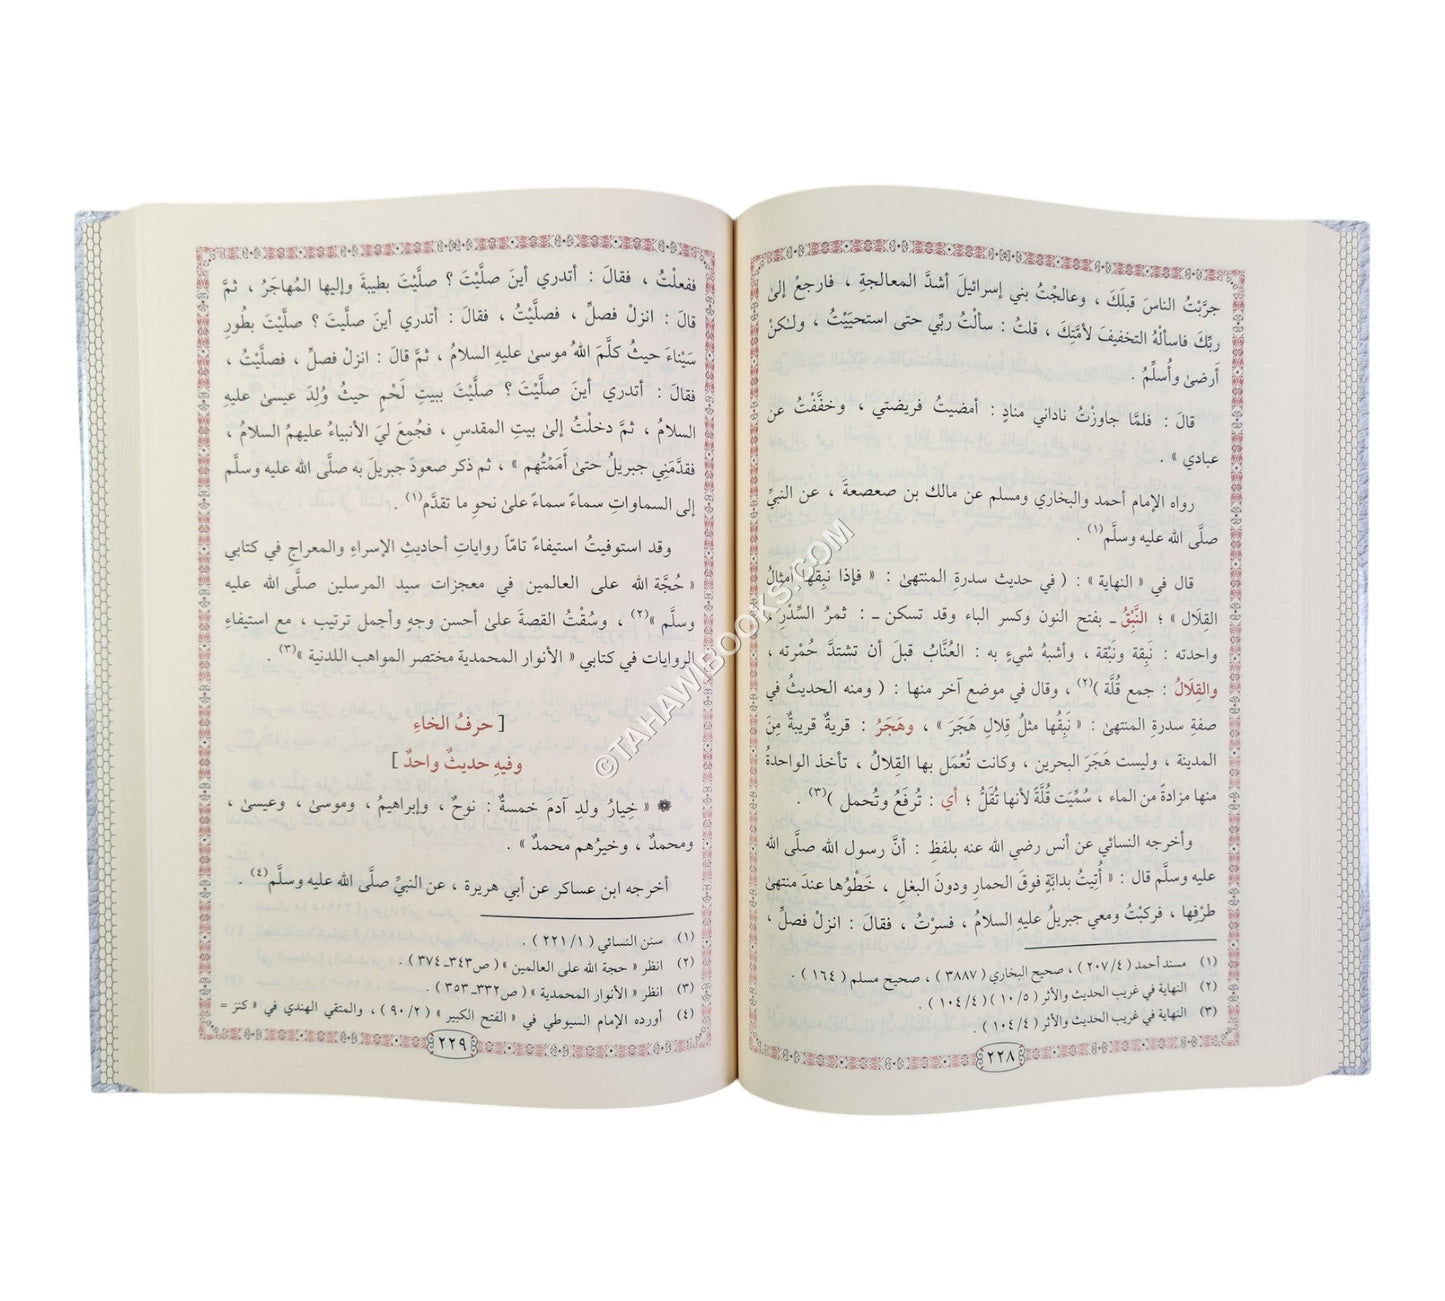 جرَّبْتُ الناسَ قبلَكَ ، وعالجْتُ بني إسرائيلَ أشدَّ المعالجةِ ، فارجعْ إلىٰ
ربِّكَ فاسألْهُ التخفيفَ لأمَّتِكَ ، قلتُ : سألْتُ ربِّي حتى استحيَيْتُ ، ولـٰكنْ
أَرضىٰ وأُسلِّمُ .
قالَ : فلمَّا جاوزْتُ ناداني منادٍ : أمضيتُ فريضتي ، وخفَّفْتُ عن
عبادي » .
رواه الإمام أحمد والبخاري ومسلم عن مالك بن صعصعةَ ، عن النبيِّ
صلَّى الله عليه وسلَّم(١) .
قال في « النهاية » : ( في حديث سدرةِ المنتهىٰ : « فإذا نبِقُها أمثالُ
القِلَال » ؛ النَّبْقُ ـ بفتح النون وكسر الباء وقد تسكن ـ : ثمرُ السِّدْرِ ،
واحدته : نَبِقة ونَبْقة ، وأشبهُ شيءٍ به : العُنَّابُ قبلَ أن تشتدَّ حُمْرته ،
والقِلَالُ : جمع قُلَّة )(٢) ، وقال في موضع آخر منها : ( ومنه الحديثُ في
صفةِ سدرةِ المنتهىٰ : « نَبِقُها مثلُ قِلالِ هَجَرَ » ، وهَجَرُ : قريةٌ قريبةٌ مِنَ
المدينة ، وليست هَجَرَ البحرين ، وكانت تُعْمَل بها القِلالُ ، تأخذ الواحدةُ
منها مزادةً من الماء ، سُمِّيَت قُلَّةً لأنها تُقَلُّ ؛ أي : تُرفَعُ وتُحمل )(٣) .
وأخرجه النسائي عن أنس رضي الله عنه بلفظِ : أنَّ رسول الله صلَّى الله
عليه وسلَّم قال : « أُتِيتُ بدابَّةٍ فوقَ الحمارِ ودونَ البغلِ ، خَطْوُها عندَ منتهىٰ
طرْفِها ، فركبْتُ ومعي جبريلُ عليهِ السلامُ ، فسرْتُ ، فقالَ : انزلْ فصلِّ ،
(١) مسند أحمد ( ٢٠٧/٤ ) ، صحيح البخاري ( ٣٨٨٧ ) ، صحيح مسلم ( ١٦٤ ) .
(٢) النهاية في غريب الحديث والأثر ( ١٠/٥ ) ( ١٠٤/٤ ) .
(٣) النهاية في غريب الحديث والأثر ( ١٠٤/٤ ) .
٢٢٨
ففعلْتُ ، فقالَ : أتدري أينَ صلَّيْتَ ؟ صلَّيْتَ بطيبةَ وإليها المُهاجَرُ ، ثمَّ
قالَ : انزلْ فصلِّ ، فصلَّيْتُ ، فقالَ : أتدري أينَ صلَّيتَ ؟ صلَّيْتَ بطُورِ
سَيْناءَ حيثُ كلَّمَ اللهُ موسىٰ عليهِ السلامُ ، ثمَّ قالَ : انزلْ فصلِّ ، فصلَّيْتُ ،
فقالَ : أتدري أينَ صلَّيْتَ ؟ صلَّيْتَ ببيتِ لَحْمٍ حيثُ وُلِدَ عيسىٰ عليهِ
السلامُ ، ثمَّ دخلْتُ إلىٰ بيتِ المقدسِ ، فجُمِعَ ليَ الأنبياءُ عليهمُ السلامُ ،
فقدَّمَنِي جبريلُ حتىٰ أَمَمْتُهم » ، ثم ذكرَ صعودَ جبريلَ به صلَّى الله عليه وسلَّم
إلى السماواتِ سماءً سماءً علىٰ نحوِ ما تقدَّم(١) .
وقد استوفيتُ استيفاءً تامّاً رواياتِ أحاديثِ الإسراءِ والمعراجِ في كتابي
« حُجَّة الله على العالمين في معجزات سيد المرسلين صلَّى الله عليه
وسلَّم »(٢) ، وسُقْتُ القصةَ علىٰ أحسن وجهٍ وأجمل ترتيب ، مع استيفاءِ
الروايات في كتابي « الأنوار المحمدية مختصر المواهب اللدنية »(٣) .
[ حرفُ الخاءِ
وفيهِ حديثٌ واحدٌ ]
« خِيارُ ولدِ آدمَ خمسةٌ : نوحٌ ، وإبراهيمُ ، وموسىٰ ، وعيسىٰ ،
ومحمدٌ ، وخيرُهم محمدٌ » .
أخرجه ابن عساكر عن أبي هريرة ، عن النبيِّ صلَّى الله عليه وسلَّم(٤) .
(١) سنن النسائي ( ٢٢١/١ ) .
(٢) انظر « حجة الله على العالمين » ( ص٣٤٣ـ٣٧٤ ) .
(٣) انظر « الأنوار المحمدية » ( ص٣٣٢ـ٣٥٣ ) .
(٤) أورده الإمام السيوطي في « الفتح الكبير » ( ٩٠/٢ ) ، والمتقي الهندي في « كنز =
٢٢٩
©TAHAWIBOOKS.COM